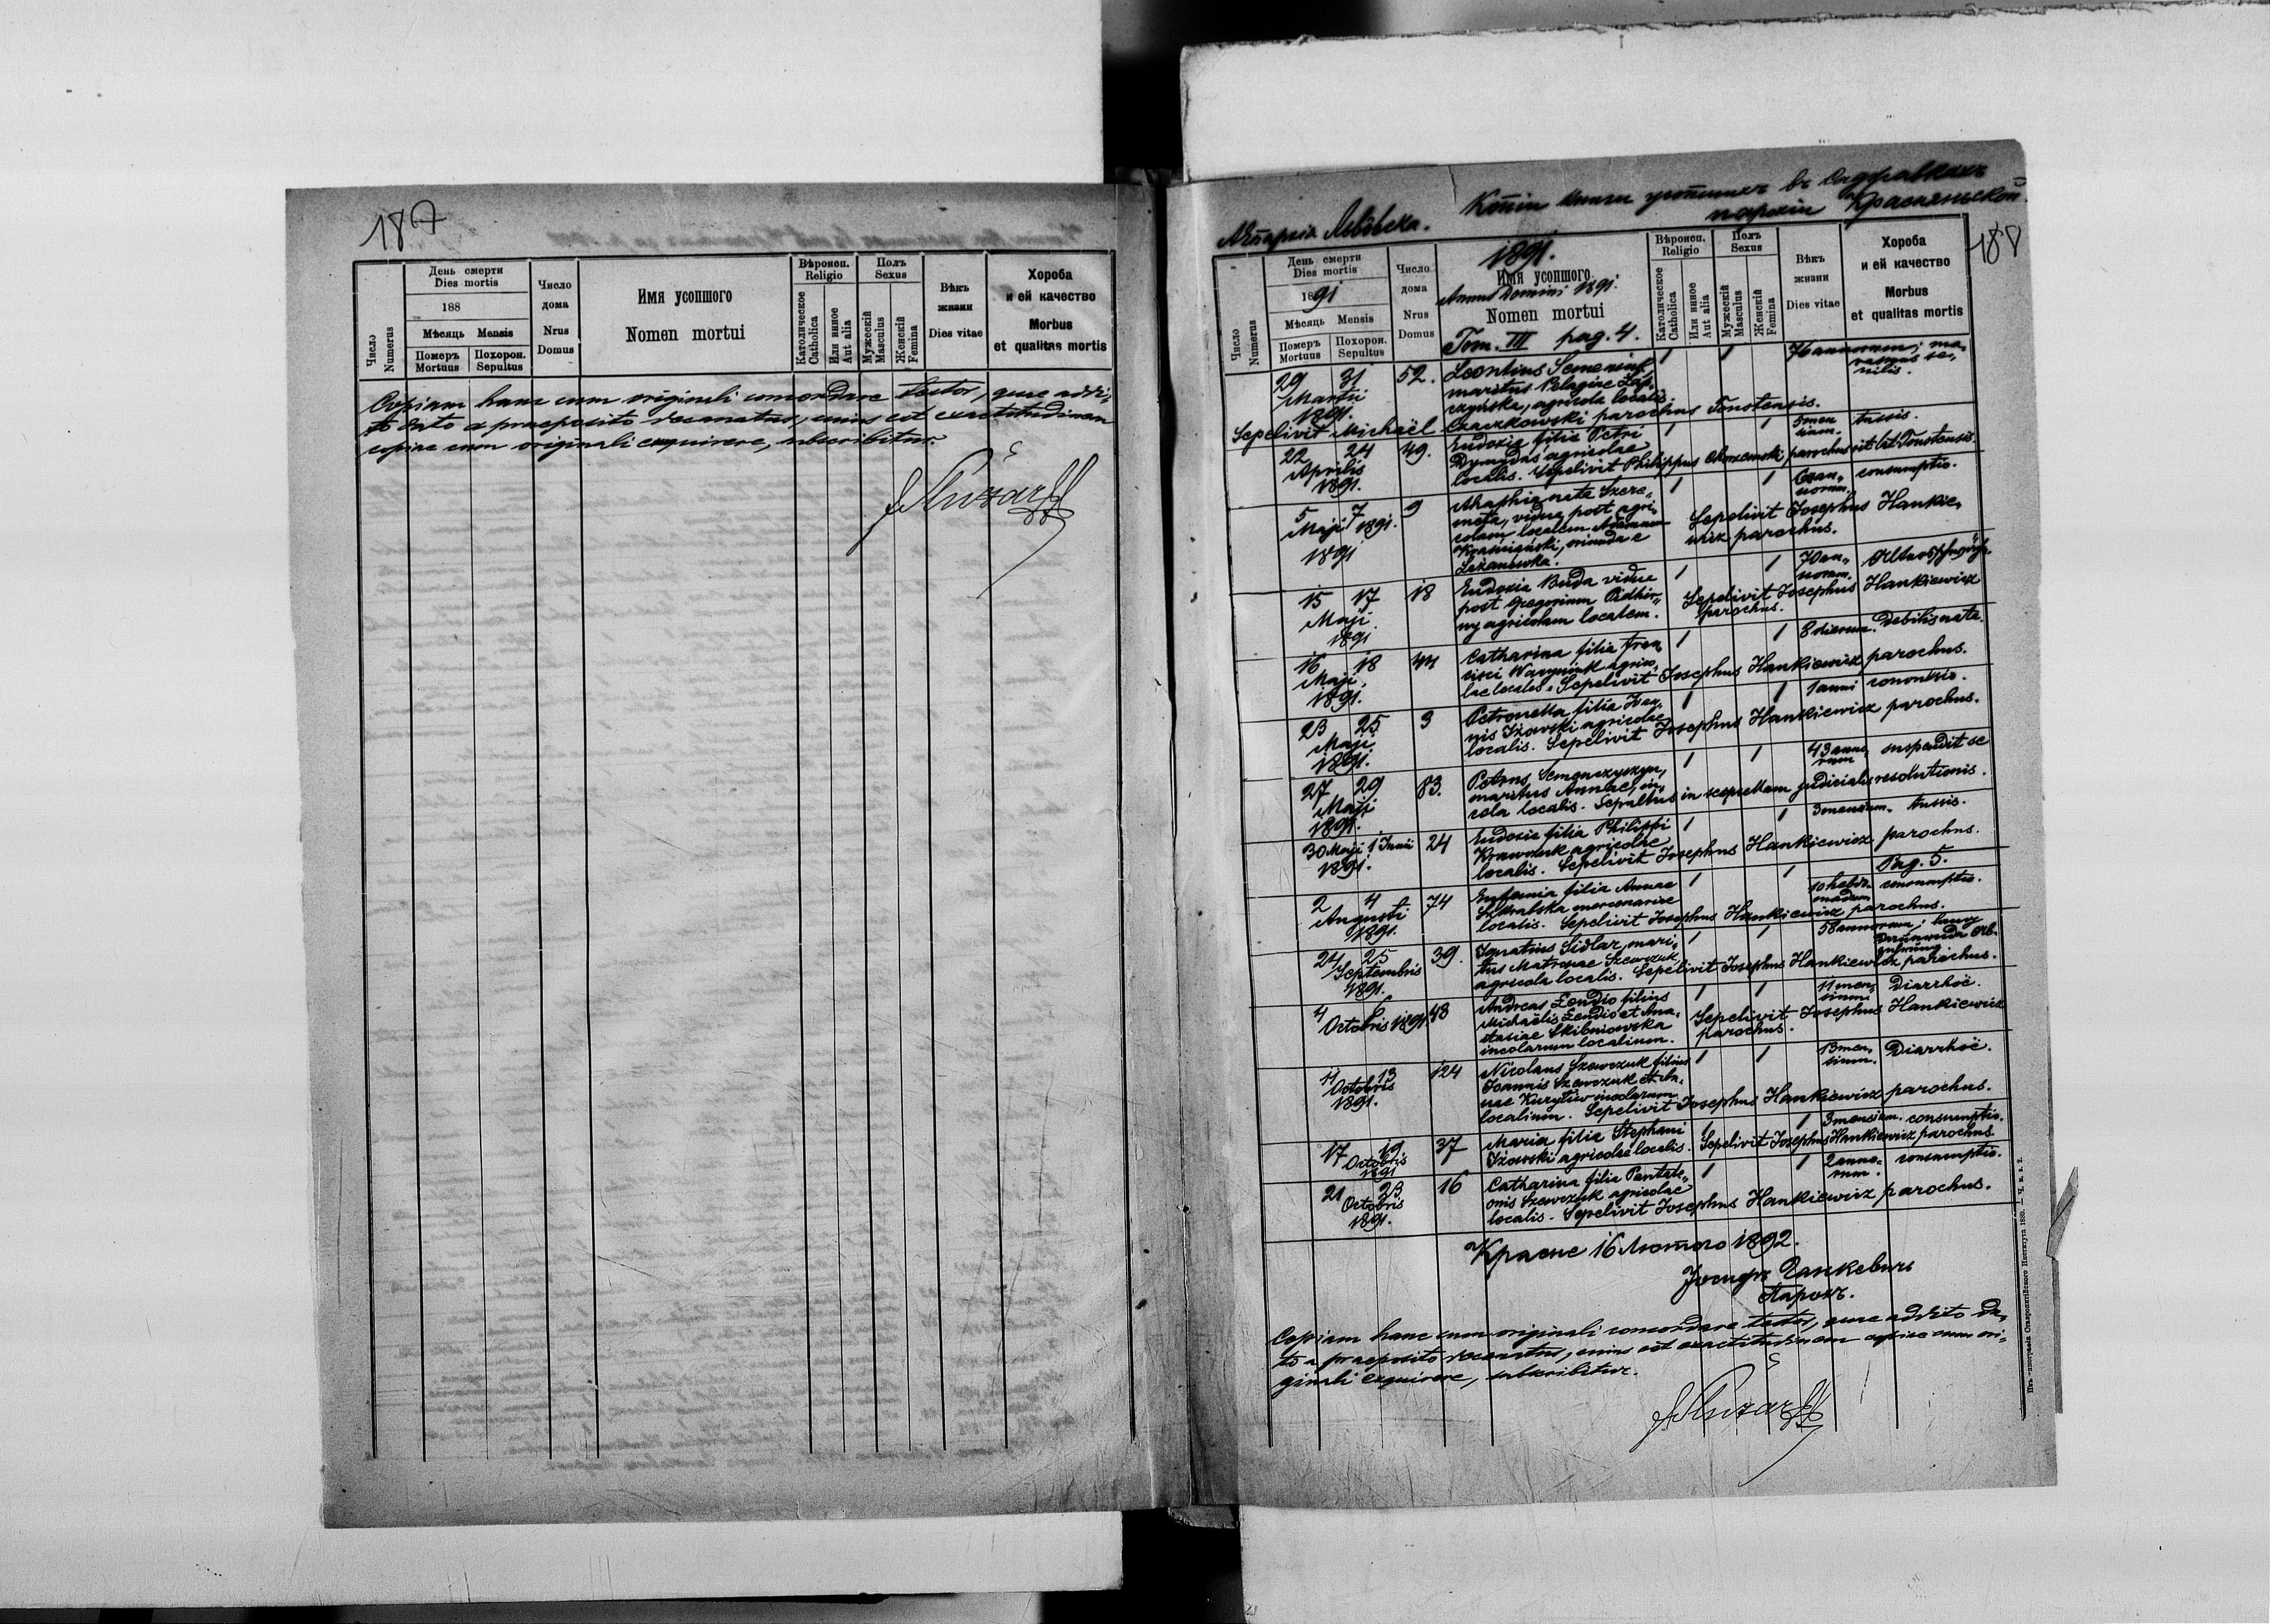 187
Число
Numerus
День смерти
Dies mortis
188
Мѣсяць Mensis
Померъ
Mortuus
Похорон.
Sepultus
Число
дома
Nrus
Domus
Имя усопшого
Nomen mortui
Вѣроисп.
Religio
Католическое
Catholica
Или инное
Aut alia
Полъ
Sexus
Мужескій
Masculus
Женскій
Femina
Вѣкъ
жизни
Dies vitae
Хороба
и ей качество
Morbus
et qualitas mortis
Copiam hanc cum originali concordare testor, quae addi,
to dato a praeposito decanatus, cuius est exactitudinem
copiae cum originali exquirere, subscribitur.
188
Копія книги усопшихъ в
парохіи Красаяньской
1891.
Число
Numerus
День смерти
Dies mortis
1891
Мѣсяць Mensis
Померъ
Mortuus
Похорон.
Sepultus
Число
дома
Nrus
Domus
Имя усопшого
Annus Domini 1891.
Nomen mortui
Tom. III pag. 4.
Вѣроисп.
Religio
Католическое
Catholica
Или инное
Aut alia
Полъ
Sexus
Мужескій
Masculus
Женскій
Femina
Вѣкъ
жизни
Dies vitae
Хороба
и ей качество
Morbus
et qualitas mortis
29 31 52. Leontius 1 1 76 annorum; ma,
Martii maritus Pelagiae rasmus se,
1891. agricola localis. nilis.
Sepelivit Michaël Czaczkowski parochus Toustensis.
22 24 49. Eudoxia filia Petri 1 1 5 men tussis.
Aprilis agricolae sium.
1891. localis. Sepelivit Philippus parochus rit. lat. Toustensis.
5 7 9 Ahaphia nata Szere, 1 1 consumptio.
Maji 1891. meta, vidua post agri, norum.
1891 colam localem Sepelivit Josephus Hankie,
oriunda e wicz parochus.
15 17 18 Eudoxia Buda vidua 1 1 70 an,
Maji post Gregorium Pidhir, norum.
1891 ny agricolam localem. Sepelivit Josephus Hankiewicz
parochus.
16 18 44 Catharina filia Fran, 1 1 8 dierum. Debilis nata.
Maji cisci agrico,
1891. lae localis. Sepelivit Josephus Hankiewicz parochus.
23 25 3 Petronella filia Joan, 1 1 1 anni
Maji nis Iżowski agricolae
1891. localis. Sepelivit Josephus Hankiewicz parochus.
27 29 83. Petrus 1 1 43 anno, suspendit se
Maji maritus Annae, in, rum
1891. cola localis. Sepultus in judicialis resolutionis.
30 Maji 1 Junii 24 Eudoxia filia Philippi 1 1 3 mensium. tussis.
1891. Krawczuk agricolae
localis. Sepelivit Josephus Hankiewicz parochus.
Pag. 5.
2 4 74 Eufemia filia Annae 1 1 10 hebdo, consumptio.
Augusti mercenariae madum
1891. localis. Sepelivit Josephus Hankiewicz parochus.
24 25 39. Ignatius Sidlar, mari, 1 1 58 annorum;
Septembris tus Matronae Szewczuk,
1891. agricola localis. Sepelivit Josephus Hankiewicz parochus.
4 6 48 Andreas Zendio filius 1 1 11 men, Diarrhoë.
Octobris 1891 Michaëlis Zendio et Ana, sium.
stasiae Skibniowska Sepelivit Josephus Hankiewicz
incolarum localium. parochus.
11 13 124 Nicolaus Szewczuk filius 1 1 13 men, Diarrhoë.
Octobris Joannis Szewczuk et An, sium.
1891. nae Kuryliw incolarum
localium. Sepelivit Josephus Hankiewicz parochus.
17 19 37 Maria filia Stephani 1 1 3 mensium. consumptio.
Octobris Iżowski agricolae localis. Sepelivit Josephus Hankiewicz parochus
1891
21 23 16 Catharina filia Pantale, 1 1 2 anno, consumptio.
Octobris onis Szewczuk agricolae rum.
1891. localis. Sepelivit Josephus Hankiewicz parochus.
Красне 16 Лютого 1892.
Іосифъ Ганкевичь
Парохъ.
Copiam hanc cum originali concordare testor, quae addito da,
to a praeposito decanatus, cuius est exactitudinem copiae cum ori,
ginali exquirere, subscribitur.